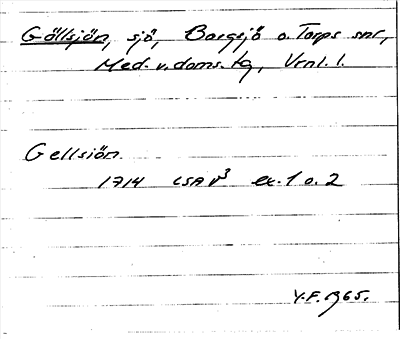 Gällsjön, sjö, Borgsjö o. Torps snr,
Med. v. doms. tg, Vrnl. l.
Gellsiön.
1714 LSA V3 ex. 1 o. 2
Y.F. 1965.